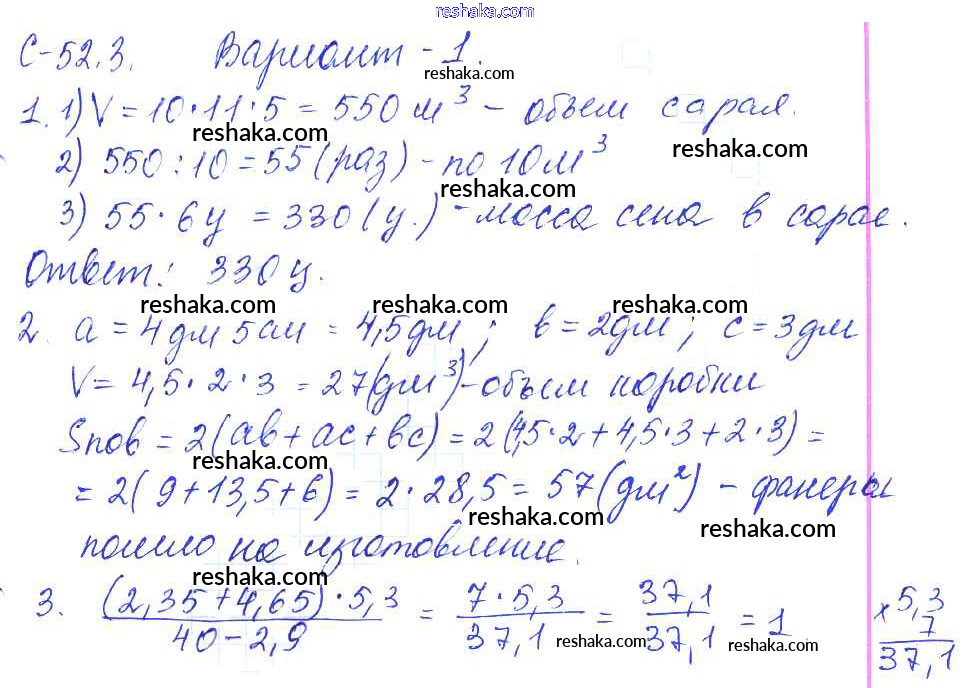 reshaka.com
С-52.3. Вариант-1.
reshaka.com
1. 1) V = 10·11·5 = 550 м³ - объем сарая.
reshaka.com reshaka.com
2) 550 : 10 = 55 (раз) - по 10 м³
reshaka.com
3) 55 · 6ц = 330 (ц.) - масса сена в сарае.
Ответ: 330 ц.
reshaka.com reshaka.com reshaka.com
2. a = 4 дм 5 см = 4,5 дм; b = 2 дм; c = 3 дм
V = 4,5 · 2 · 3 = 27 (дм³) - объем коробки
Sпов = 2(ab + ac + bc) = 2(4,5·2 + 4,5·3 + 2·3) =
reshaka.com
= 2(9 + 13,5 + 6) = 2 · 28,5 = 57 (дм²) - фанеры
reshaka.com reshaka.com
пошло на изготовление.
reshaka.com
3. (2,35 + 4,65) · 5,3 / 40 - 2,9 = 7 · 5,3 / 37,1 = 37,1 / 37,1 = 1
reshaka.com reshaka.com
× 5,3
7
37,1